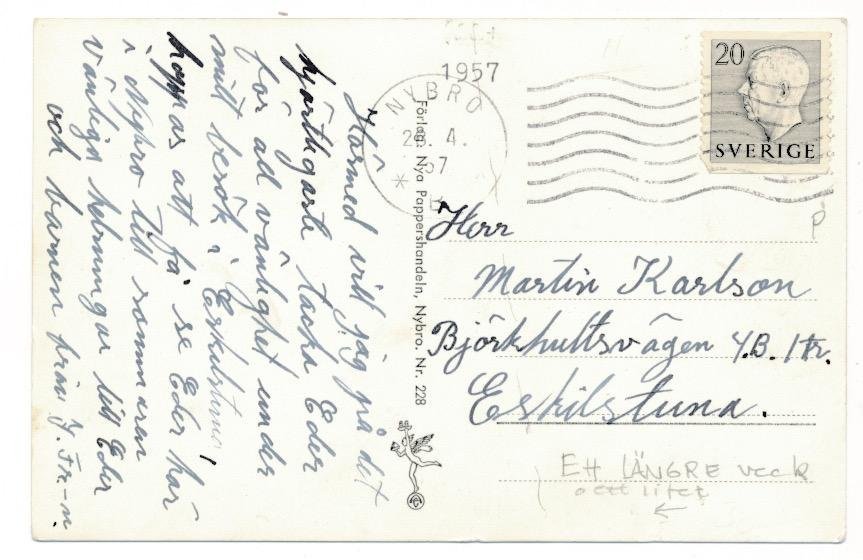 Härmed vill jag på det
hjärtligaste tacka Eder
för all vänlighet under
mitt besök i Eskilstuna!
hoppas att få se Eder här
i Nybro till sommaren
Vänliga hälsningar till Eder
och barnen från J. Fr-n.
Förlag: Nya Pappershandeln, Nybro. Nr. 228
1957
NYBRO
4.
57
20
SVERIGE
P
Herr
Martin Karlson
Björkhultsvägen 4.B. 1 tr.
Eskilstuna.
Ett LÄNGRE veck
o ett litet